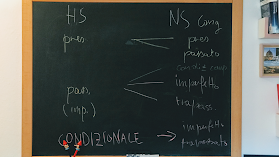 HS NS Cong
pres pres
passato
pass. imperfetto
(imp.) trapass.
CONDIZIONALE → imperfetto
trapassato